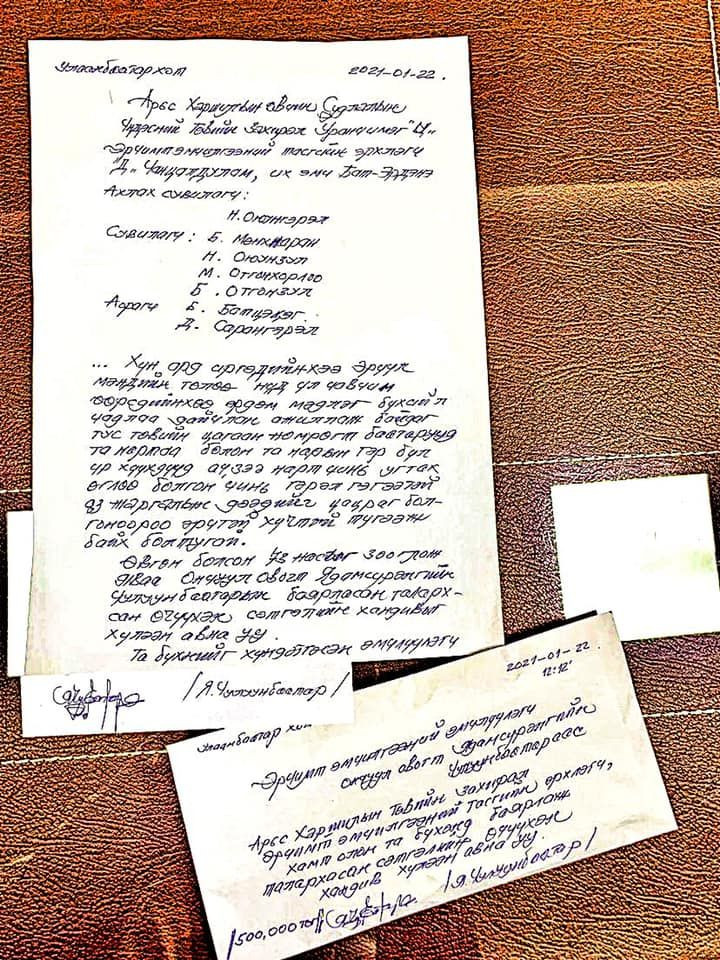 Улаанбаатар хот 2021-01-22.
Арьс Харшлын өвчин Судлалын
Үндэсний Төвийн Захирал Уранчимэг "Ц"
Эрчимт эмчилгээний тасгийн эрхлэгч
"Д" Чанцалдулам, их эмч Бат-Эрдэнэ
Ахлах сувилагч:
Н. Оюунгэрэл
Сувилагч: Б. Мөнхжаран
Н. Оюунзул
М. Отгонхорлоо
Б. Отгонзул
Асрагч Б. Батцэцэг
Д. Сарангэрэл
... Хүн ард иргэдийнхээ эрүүл
мэндийн төлөө нүд үл цавчим
өөрсдийнхөө эрдэм мэдлэг бүхий л
чадлаа дайчлан ажиллаж байдаг
тус төвийн цагаан нөмрөгт баатарууд
та нартаа болон та нарын гэр бүл
үр хүүхдүүд ачзээ нарт чинь угтах
өглөө болгон чинь гэрэл гэгээтэй
аз жаргалын дээдийг цацраг бол-
гоноороо эрчтэй хүчтэй түгээж
байх болтугай.
Өвгөн болсон 73 насыг зооглож
яваа Ончуул овогт Ядамсүрэнгийн
Чулуунбаатарын баярласан таларх-
сан өчүүхэн сэтгэлийн хандивыг
хүлээн авна уу.
Та бүхнийг хүндэтгэсэн эмчлүүлэгч
/Я. Чулуунбаатар/
2021-01-22
12:12'
Улаанбаатар хот
Эрчимт эмчилгээний эмчлүүлэгч
Ончуул овогт Ядамсүрэнгийн
Чулуунбаатараас
Арьс Харшлын Төвийн захирал
Эрчимт эмчилгээний тасгийн эрхлэгч,
хамт олон та бүхэнд баярлаж
талархасан сэтгэлийн өчүүхэн
хандив хүлээн авна уу.
/500,000төг/ /Я. Чулуунбаатар/